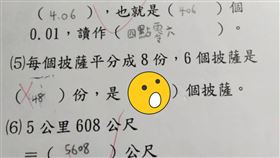 (4.06),也就是(406)個
0.01,讀作(四點零六)
(5)每個披薩平分成8份,6個披薩是
(48)份,是( )個披薩。
(6)5公里608公尺
=(5608)公尺